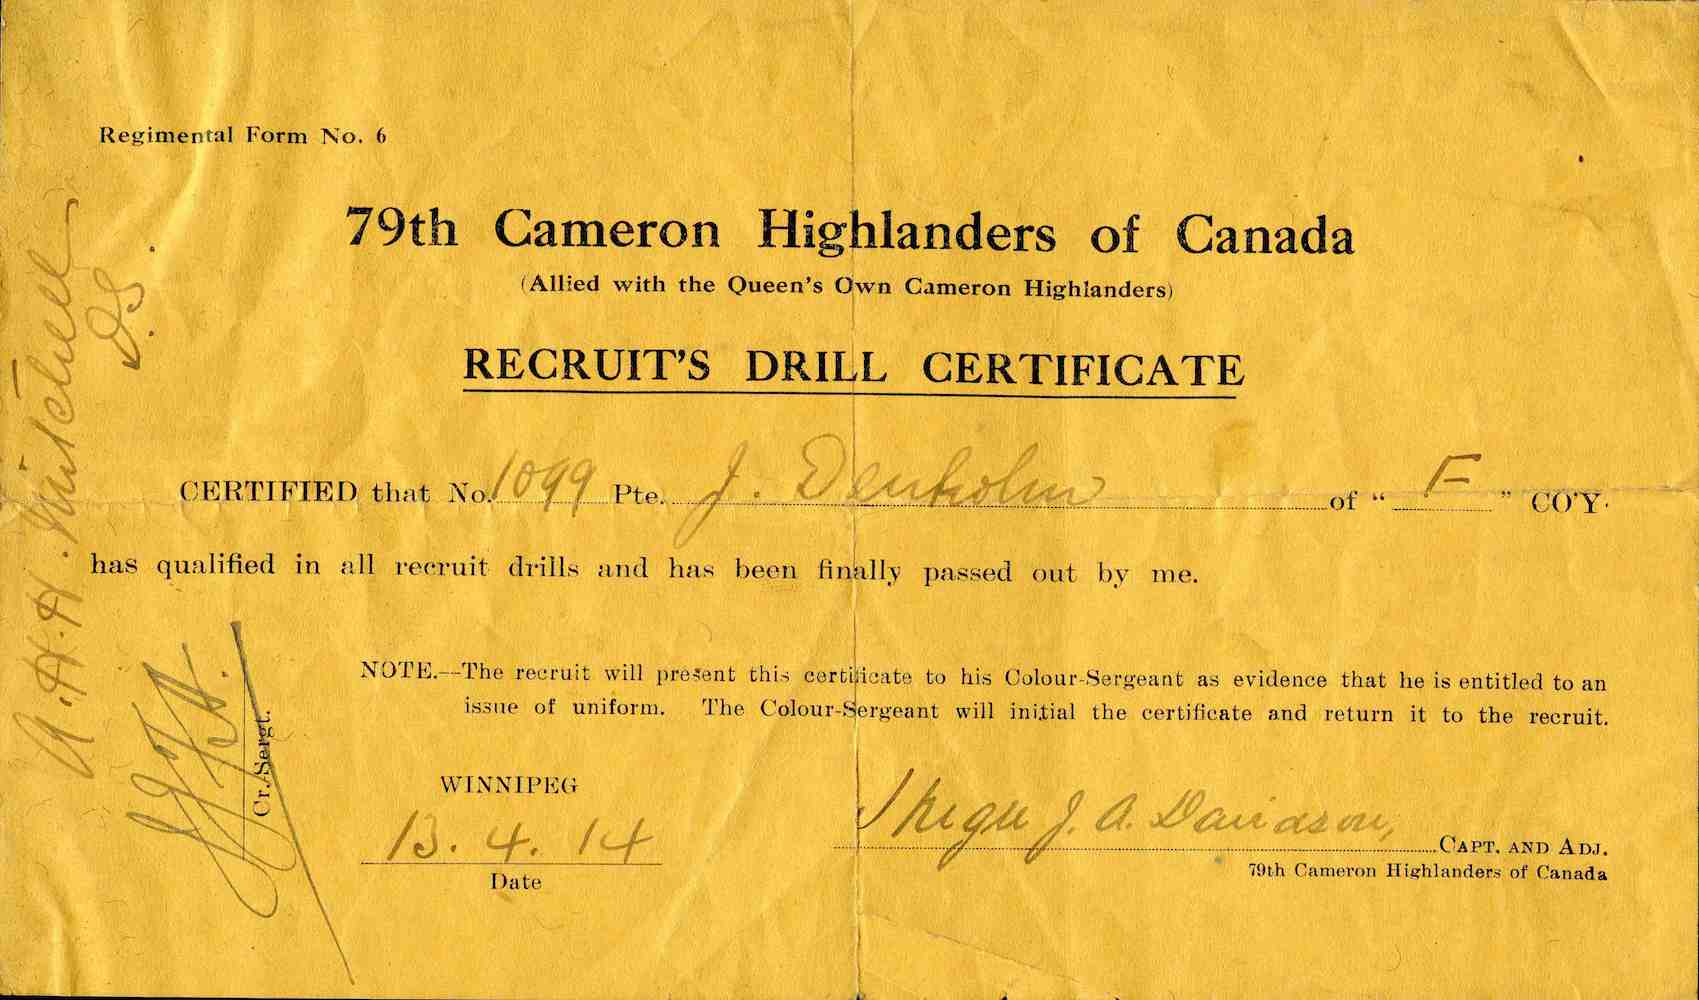 Regimental Form No. 6
79th Cameron Highlanders of Canada
(Allied with the Queen's Own Cameron Highlanders)
RECRUIT'S DRILL CERTIFICATE
CERTIFIED that No. 1099 Pte. J. Denholm of " F " CO'Y.
has qualified in all recruit drills and has been finally passed out by me.
NOTE.—The recruit will present this certificate to his Colour-Sergeant as evidence that he is entitled to an
issue of uniform. The Colour-Sergeant will initial the certificate and return it to the recruit.
WINNIPEG
13. 4. 14
Date
J. A. Davidson, CAPT. AND ADJ.
79th Cameron Highlanders of Canada
Cr. Sergt.
A. H. H. Mitchell